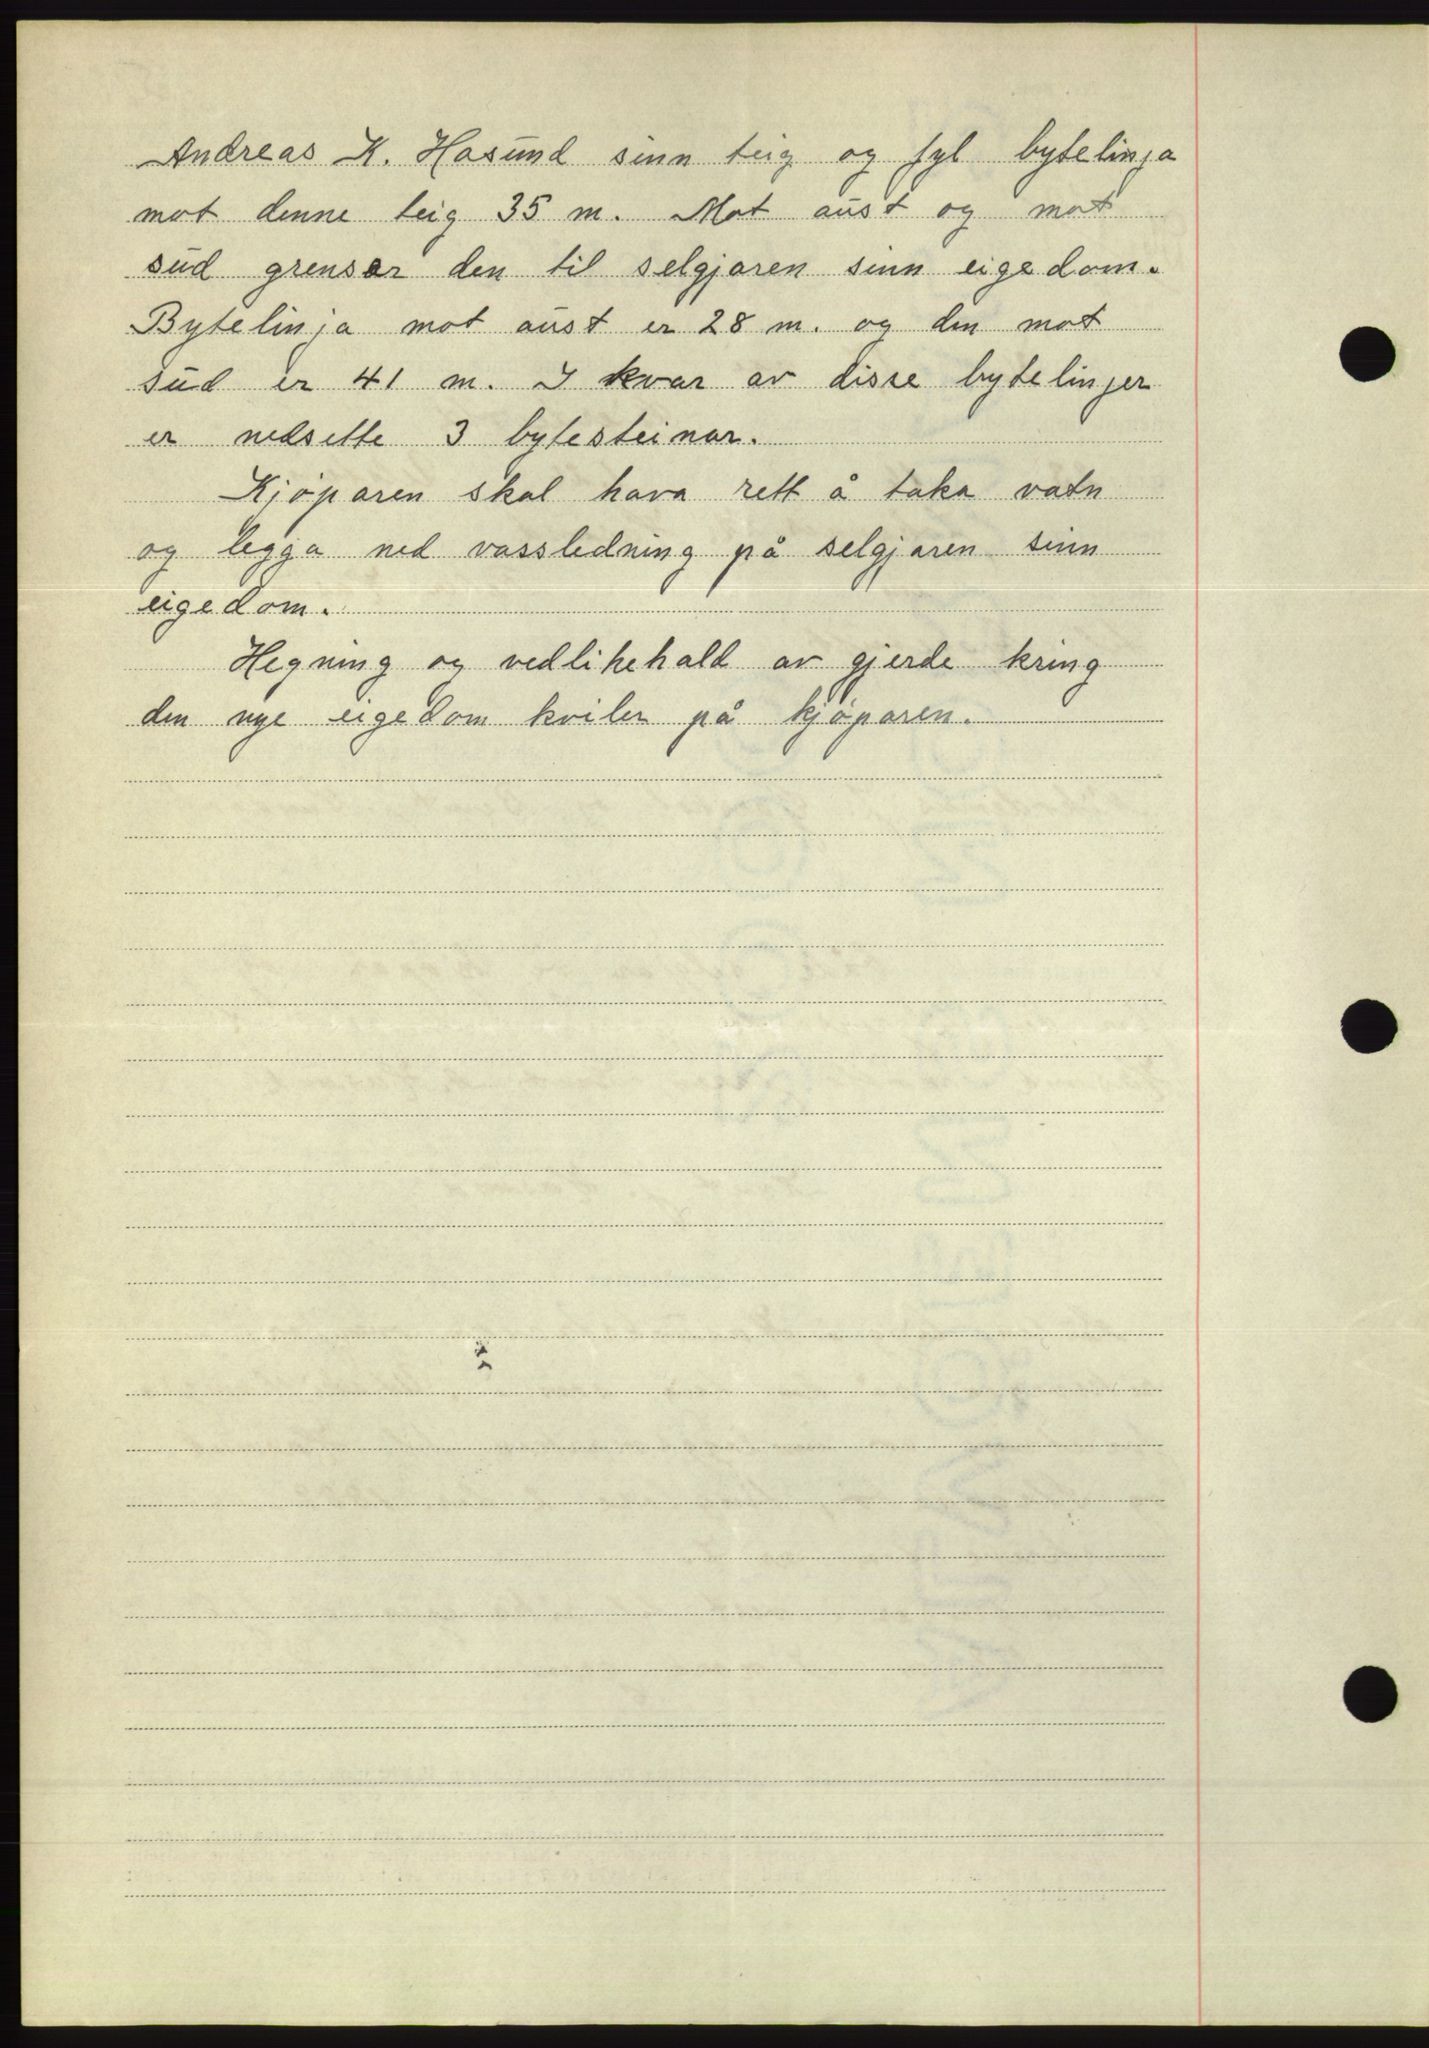 Andreas K. Hasund sinn teig og fyl bytelinja
mot denne teig 35 m. Mot aust og mot
sud grenser den til selgjaren sinn eigedom.
Bytelinja mot aust er 28 m. og den mot
sud er 41 m. I kvar av disse bytelinjer
er nedsette 3 bytesteinar.
Kjøparen skal hava rett å taka vatn
og legga ned vassledning på selgjaren sinn
eigedom.
Hegning og vedlikehald av gjerde kring
den nye eigedom kviler på kjøparen.